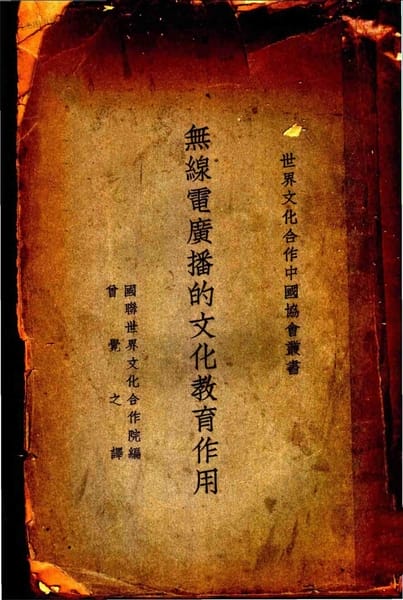 世界文化合作中國協會叢書
無線電廣播的文化教育作用
國聯世界文化合作院編
曾覺之譯